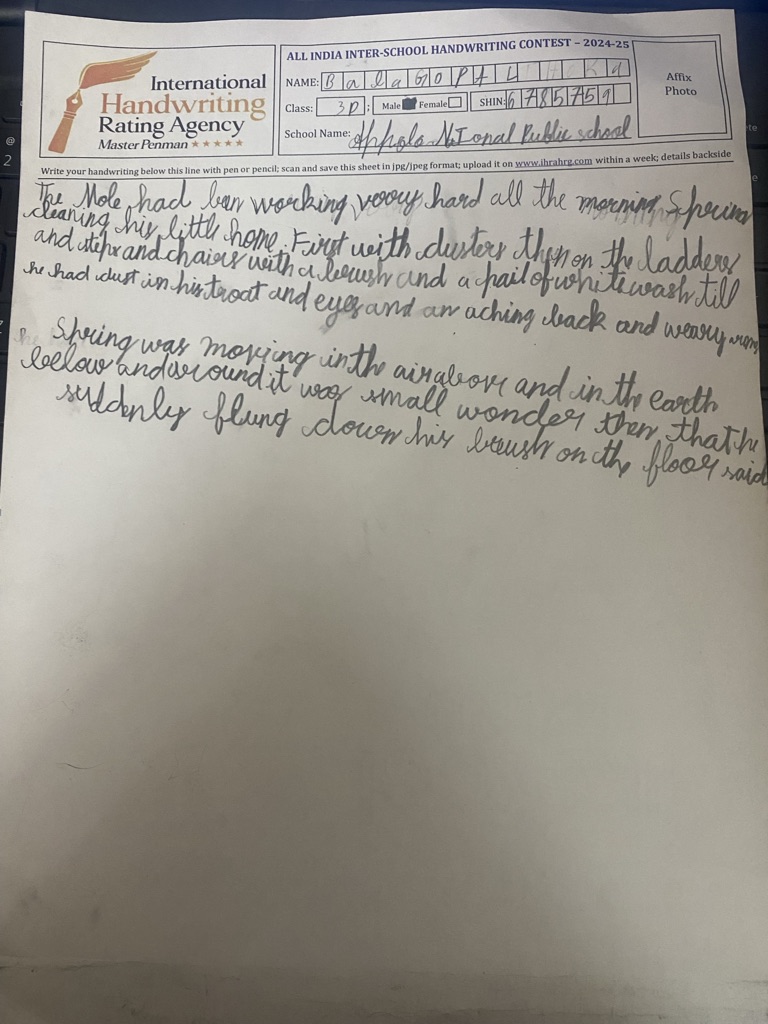 ALL INDIA INTER-SCHOOL HANDWRITING CONTEST – 2024-25
International
Handwriting
Rating Agency
Master Penman ★★★★★
NAME: BalaGOPAL
Class: 3D Male Female SHIN: 6785759
School Name: Appholo NatIonal Public school
Affix
Photo
Write your handwriting below this line with pen or pencil; scan and save this sheet in jpg/jpeg format; upload it on www.ihrahrg.com within a week; details backside
The Mole had ben working veory hard all the morning, Spring
cleaning his little home. First with dusters then on the ladders
and steps and chairs with a brush and a pail of white wash till
he had dust in his troat and eyes and an aching back and weary arms
Spring was moving in the air above and in the earth
bellow and around it was small wonder then that he
suddenly flung down his brush on the floor said